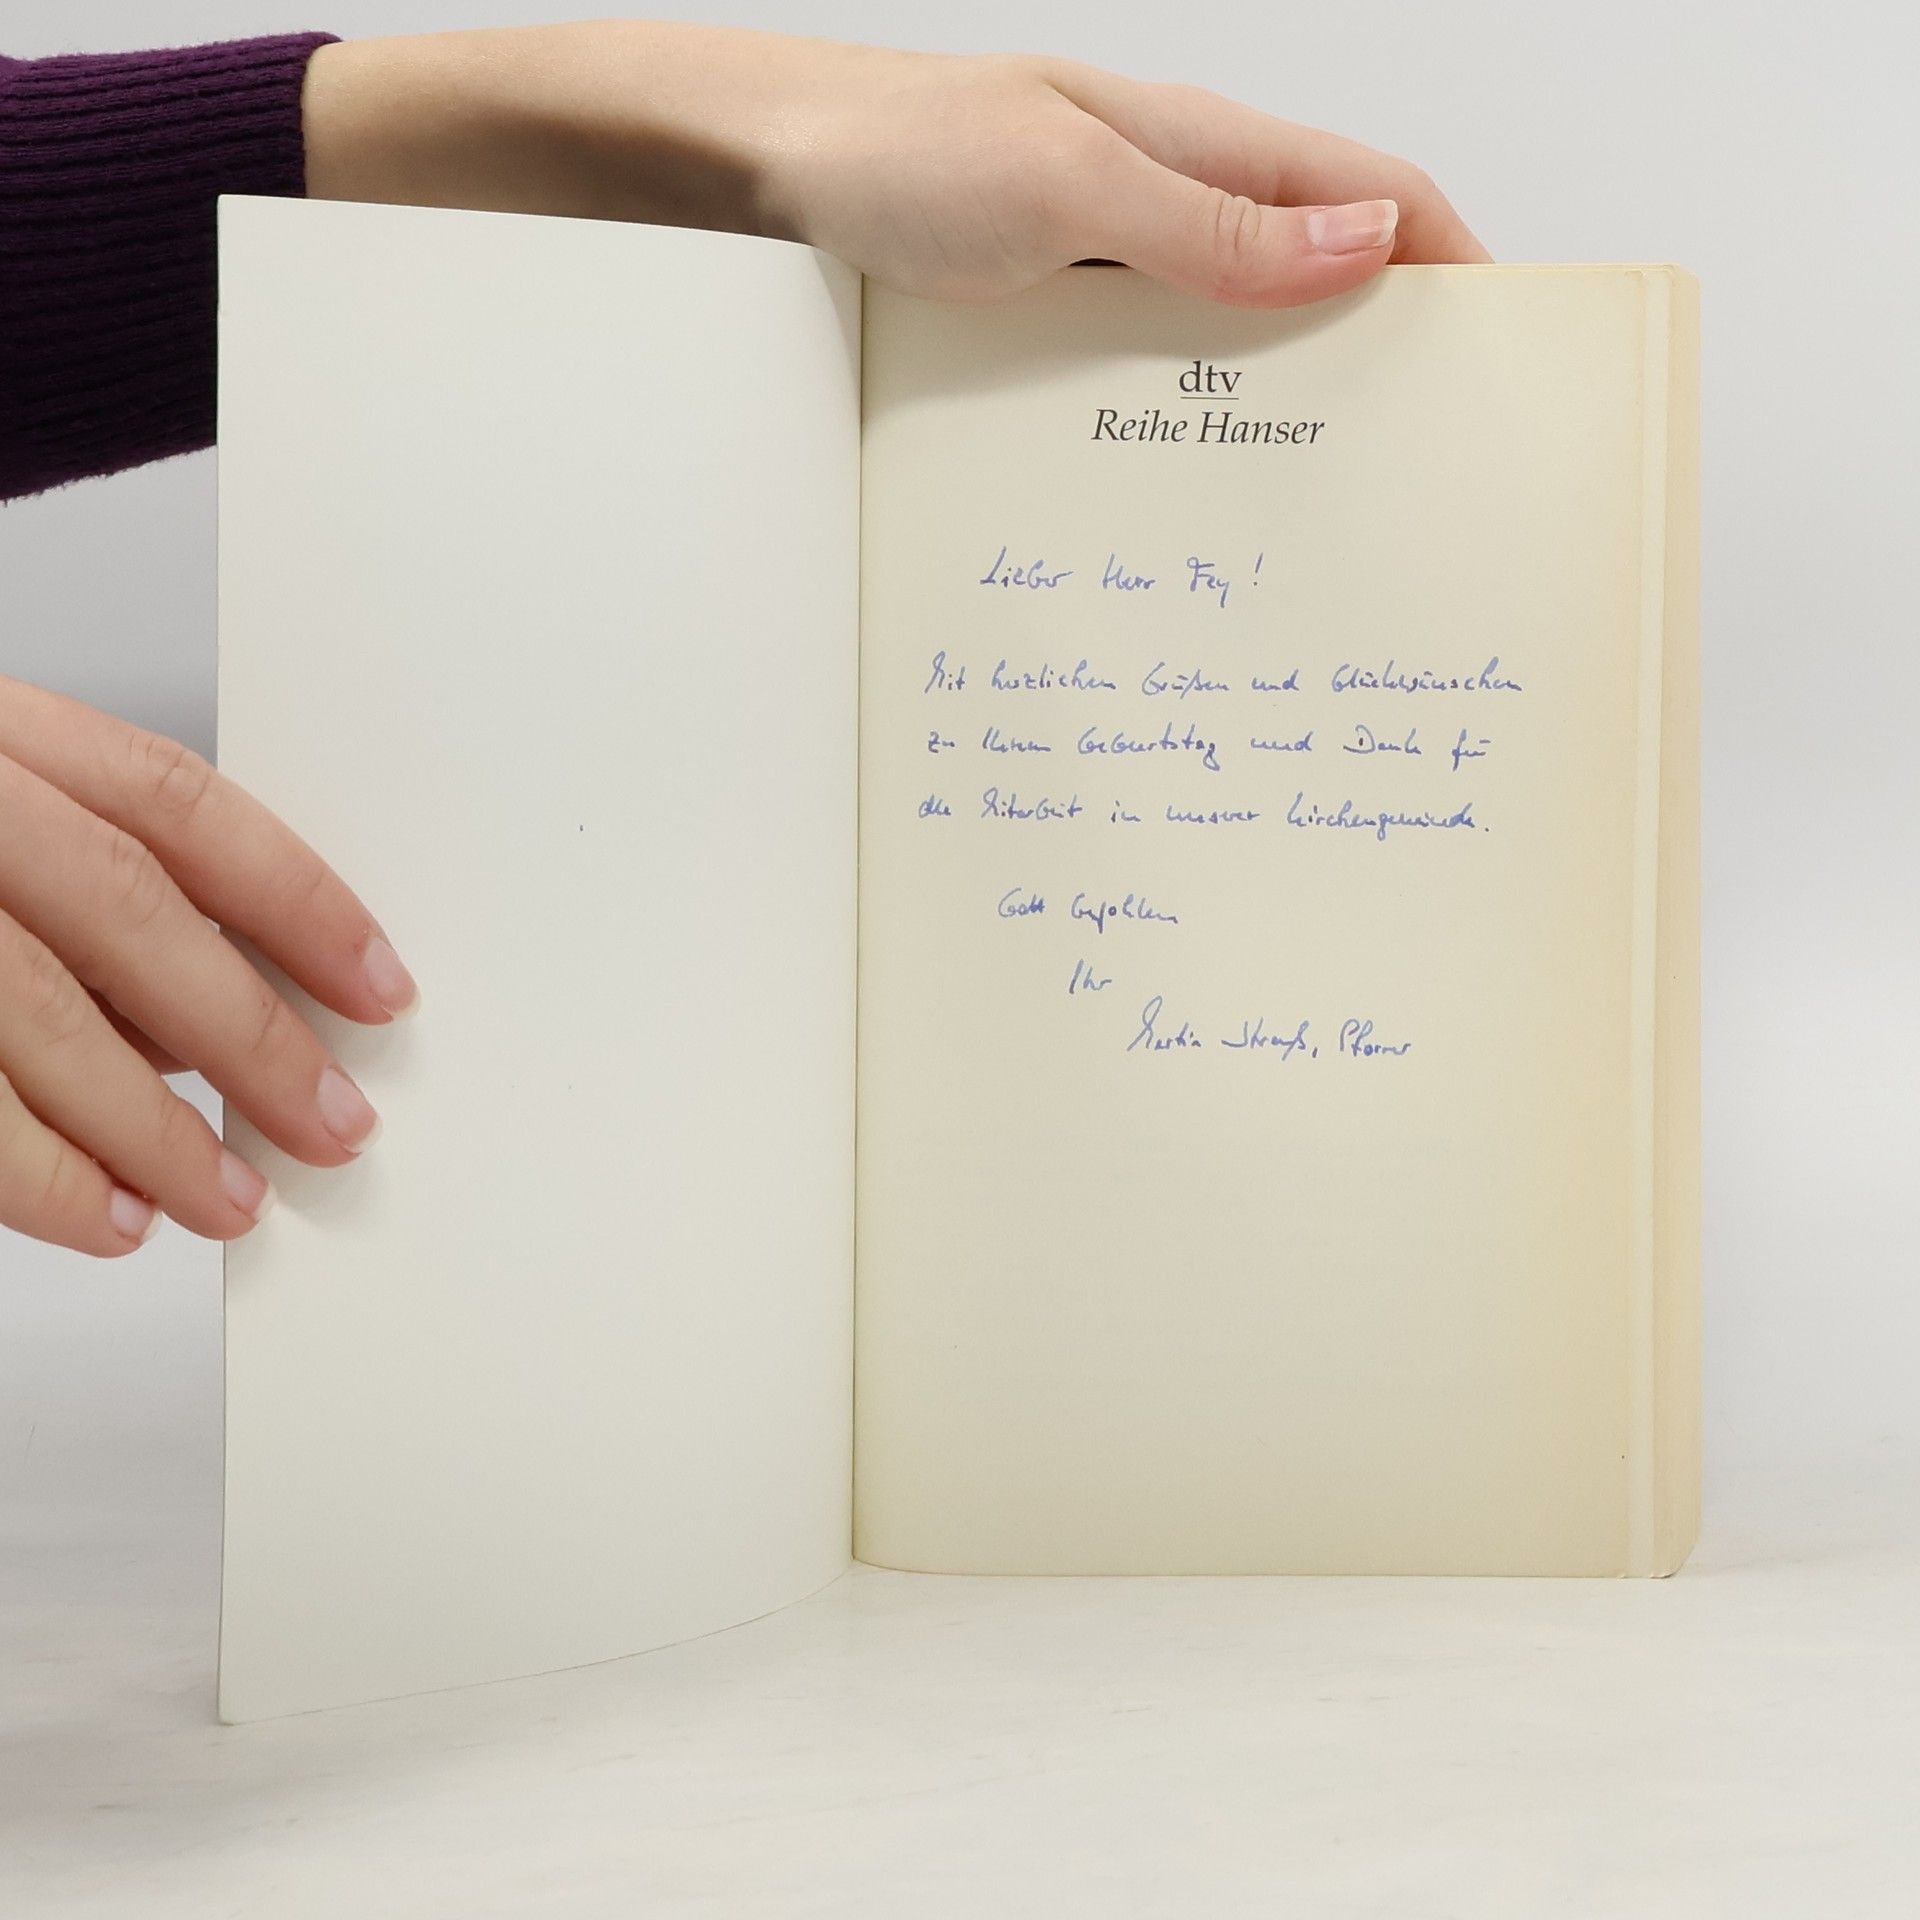 dtv
Reihe Hanser
Lieber Herr Fey!
Mit herzlichen Grüßen und Glückwünschen
zu Ihrem Geburtstag und Dank für
die Mitarbeit in unserer Kirchengemeinde.
Gott befohlen
Ihr
Martin Strauß, Pfarrer